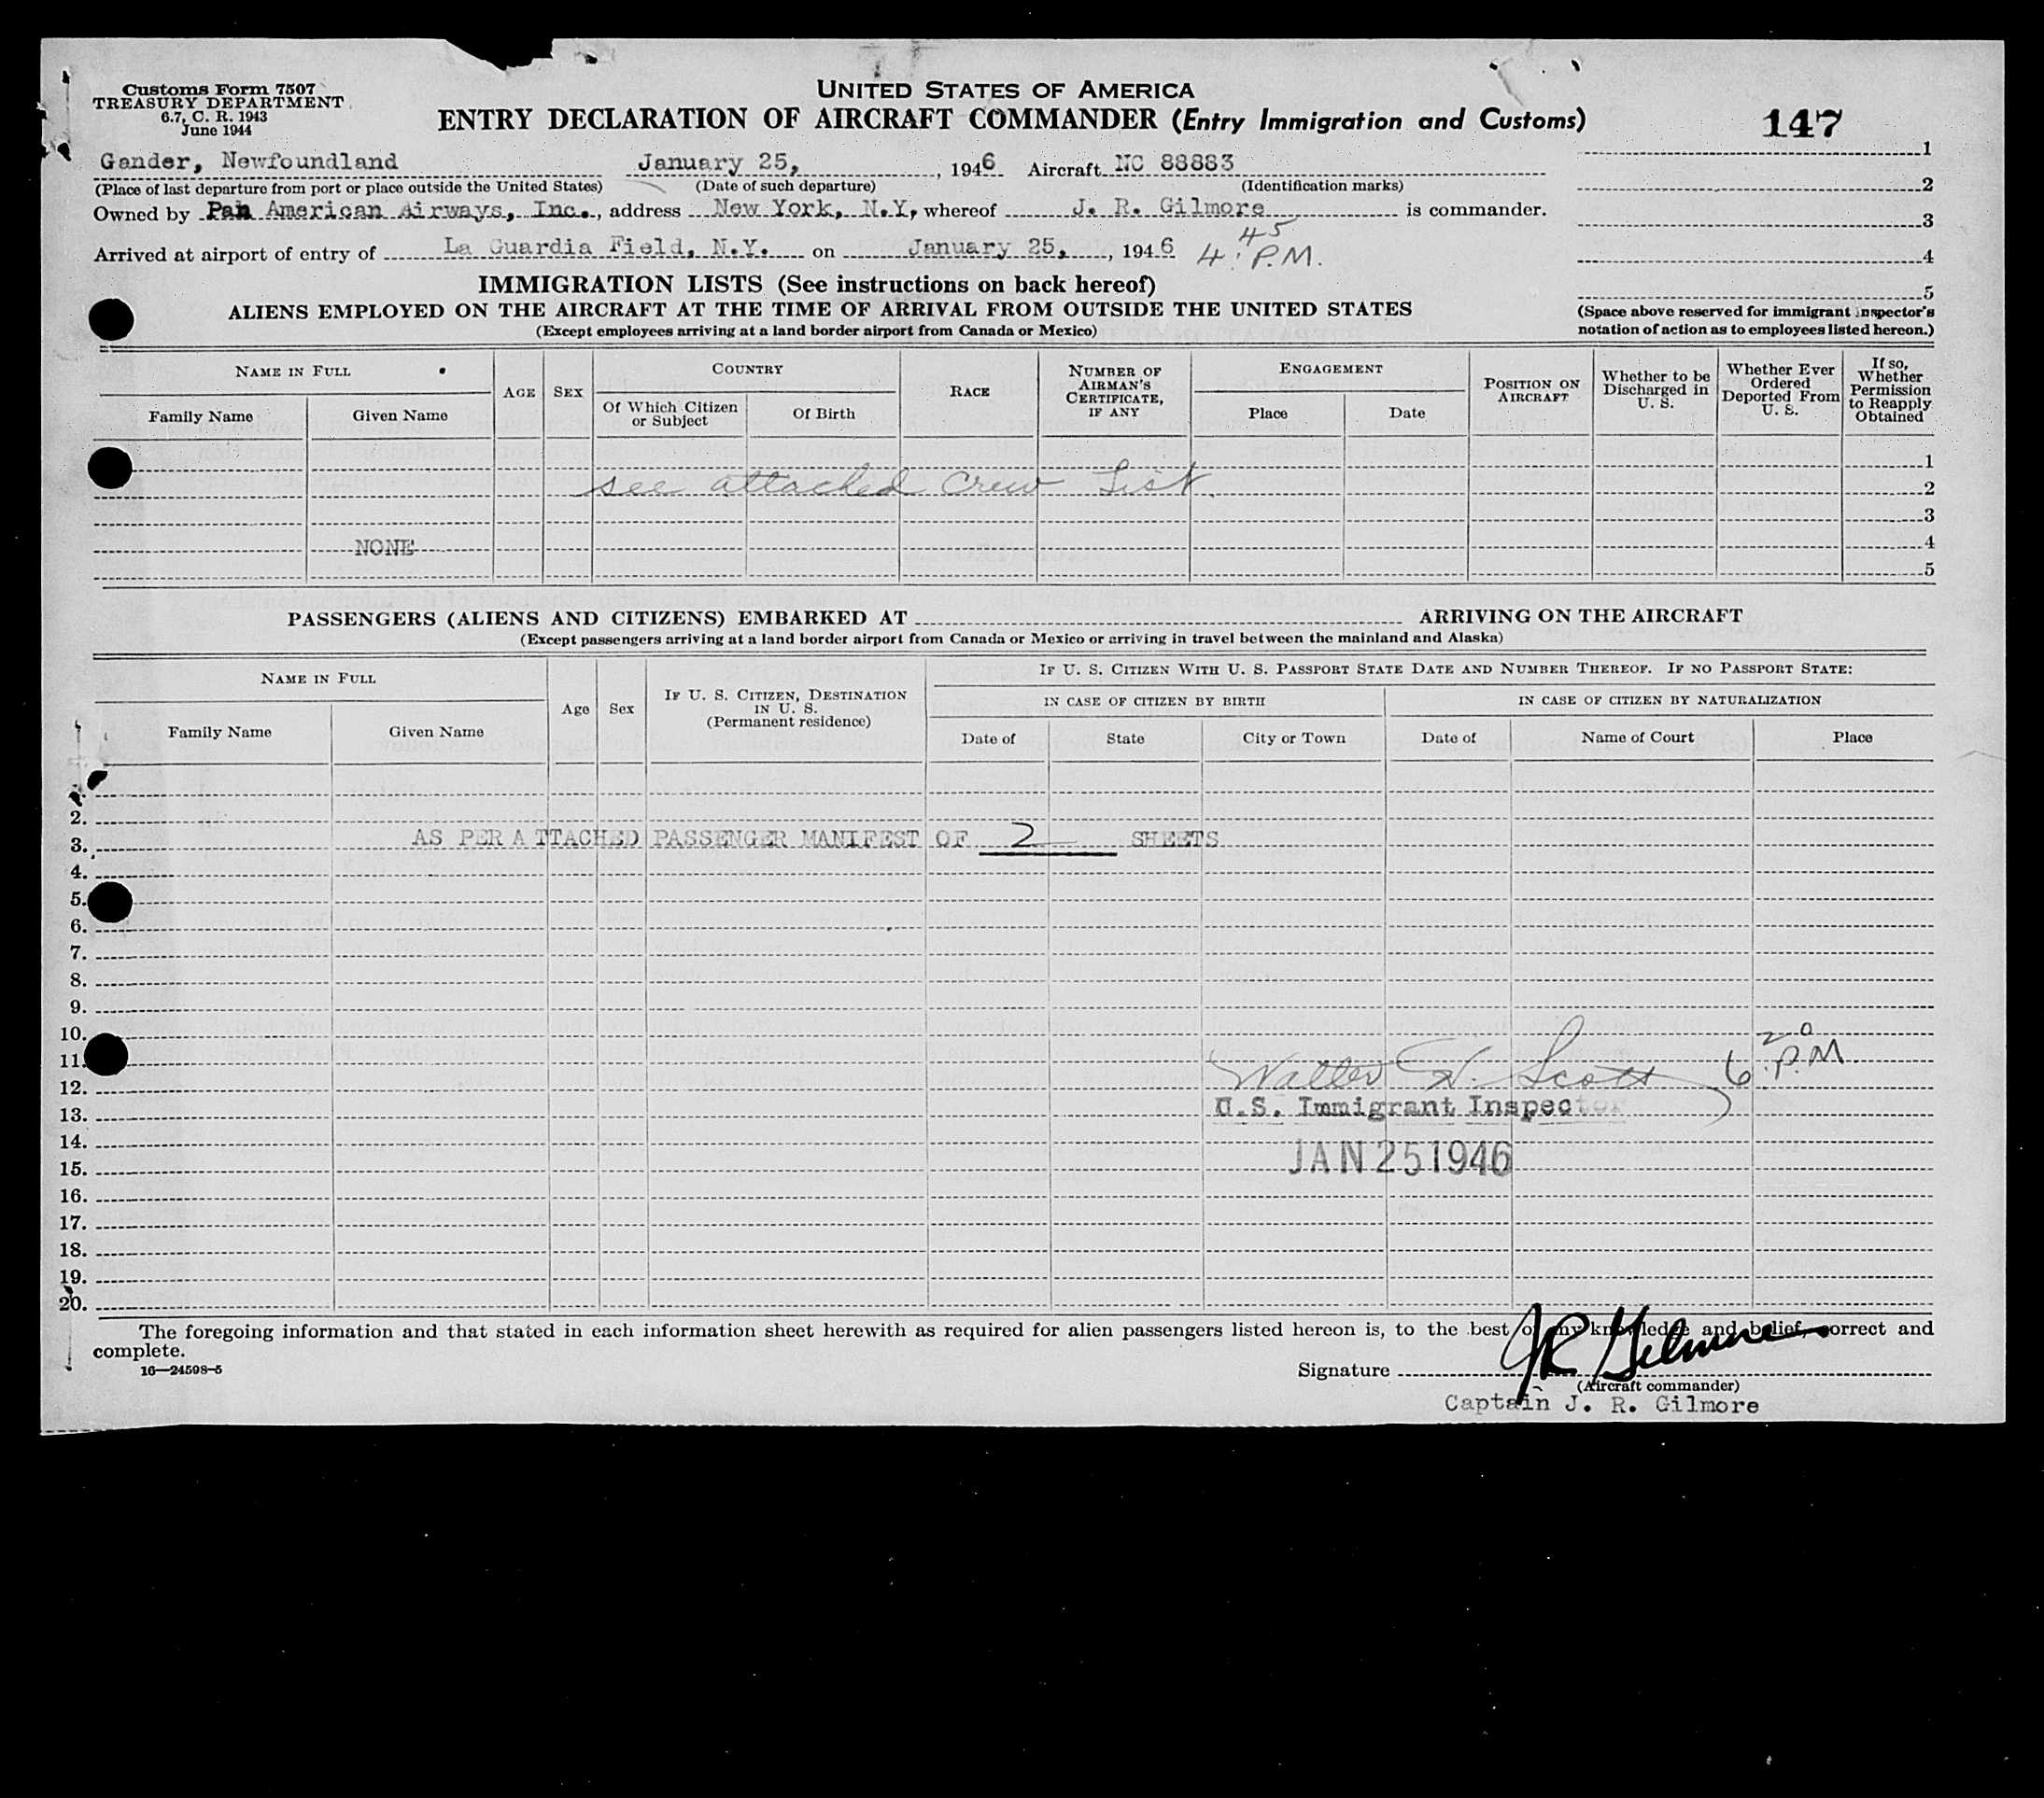 Customs Form 7507
TREASURY DEPARTMENT
6.7, C. R. 1943
June 1944
UNITED STATES OF AMERICA
ENTRY DECLARATION OF AIRCRAFT COMMANDER (Entry Immigration and Customs)
147
Gander, Newfoundland January 25, , 1946 Aircraft NC 88883
(Place of last departure from port or place outside the United States) (Date of such departure) (Identification marks)
Owned by Pan American Airways, Inc., address New York, N.Y, whereof J. R. Gilmore is commander.
Arrived at airport of entry of La Guardia Field, N.Y. on January 25, , 1946 4:45 P.M.
1
2
3
4
5
(Space above reserved for immigrant inspector's
notation of action as to employees listed hereon.)
IMMIGRATION LISTS (See instructions on back hereof)
ALIENS EMPLOYED ON THE AIRCRAFT AT THE TIME OF ARRIVAL FROM OUTSIDE THE UNITED STATES
(Except employees arriving at a land border airport from Canada or Mexico)
NAME IN FULL
Family Name
Given Name
AGE
SEX
COUNTRY
Of Which Citizen
or Subject
Of Birth
RACE
NUMBER OF
AIRMAN'S
CERTIFICATE,
IF ANY
ENGAGEMENT
Place
Date
POSITION ON
AIRCRAFT
Whether to be
Discharged in
U. S.
Whether Ever
Ordered
Deported From
U. S.
If so,
Whether
Permission
to Reapply
Obtained
1
see attached Crew List. 2
3
NONE 4
5
PASSENGERS (ALIENS AND CITIZENS) EMBARKED AT ARRIVING ON THE AIRCRAFT
(Except passengers arriving at a land border airport from Canada or Mexico or arriving in travel between the mainland and Alaska)
NAME IN FULL
Family Name
Given Name
Age
Sex
IF U. S. CITIZEN, DESTINATION
IN U. S.
(Permanent residence)
IF U. S. CITIZEN WITH U. S. PASSPORT STATE DATE AND NUMBER THEREOF. IF NO PASSPORT STATE:
IN CASE OF CITIZEN BY BIRTH
IN CASE OF CITIZEN BY NATURALIZATION
Date of
State
City or Town
Date of
Name of Court
Place
2.
3. AS PER ATTACHED PASSENGER MANIFEST OF 2 SHEETS
4.
5.
6.
7.
8.
9.
10.
11. Walter W. Scott 6:20 P.M
12.
13. U.S. Immigrant Inspector
14.
15. JAN 25 1946
16.
17.
18.
19.
20.
The foregoing information and that stated in each information sheet herewith as required for alien passengers listed hereon is, to the best of my knowledge and belief, correct and
complete.
16—24598-5
Signature JR Gilmore
(Aircraft commander)
Captain J. R. Gilmore